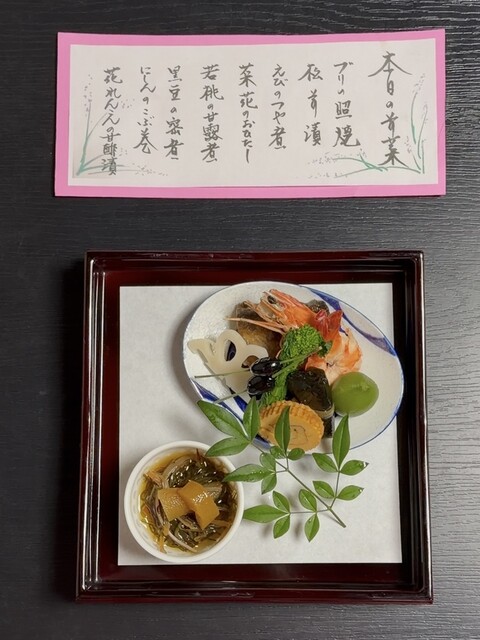 本日の前菜
ブリの照焼
松前漬
えびのつや煮
菜花のおひたし
若桃の甘露煮
黒豆の密煮
にしんのこぶ巻
花れんこんの甘酢漬